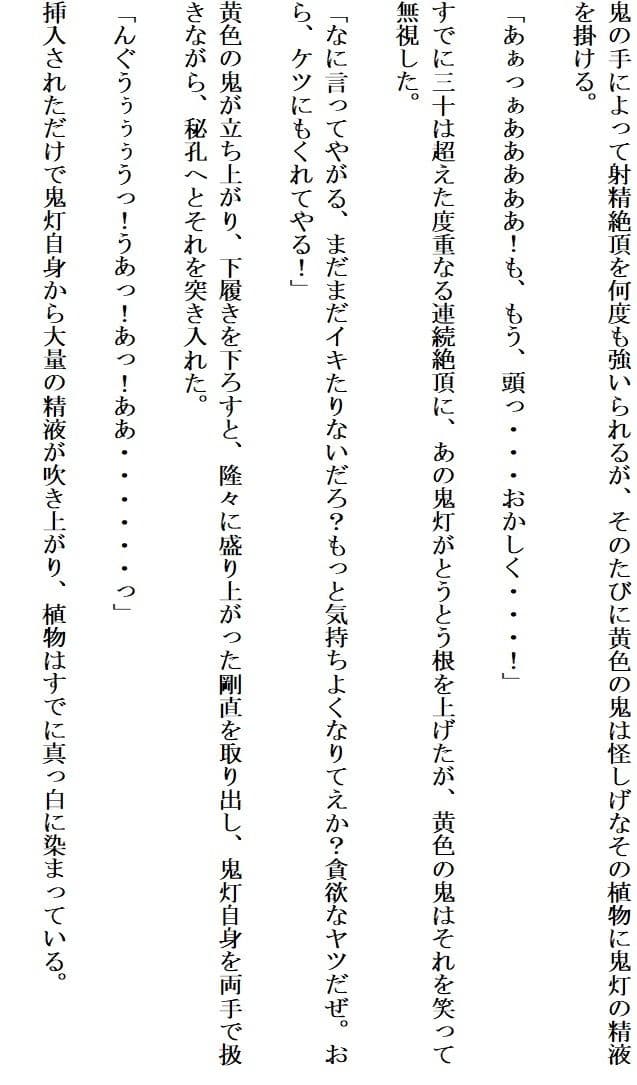 鬼の手によって射精絶頂を何度も強いられるが、そのたびに黄色の鬼は怪しげなその植物に鬼灯の精液
を掛ける。
「あぁっぁああああ！も、もう、頭っ・・・おかしく・・・！」
すでに三十は超えた度重なる連続絶頂に、あの鬼灯がとうとう根を上げたが、黄色の鬼はそれを笑って
無視した。
「なに言ってやがる、まだまだイキたりないだろ？もっと気持ちよくなりてえか？貪欲なヤツだぜ。お
ら、ケツにもくれてやる！」
黄色の鬼が立ち上がり、下履きを下ろすと、隆々に盛り上がった剛直を取り出し、鬼灯自身を両手で扱
きながら、秘孔へとそれを突き入れた。
「んぐうぅぅぅうっ！うあっ！あっ！ああ・・・・・・っ」
挿入されただけで鬼灯自身から大量の精液が吹き上がり、植物はすでに真っ白に染まっている。